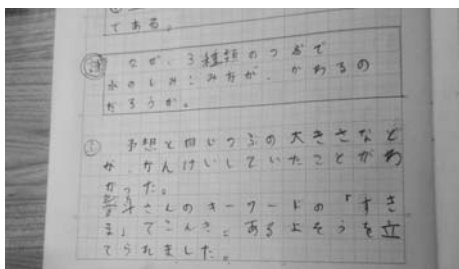 である。
なぜ、3種類のつぶで
水のしみこみ方が、かわるの
だろうか。
予想と同じつぶの大きさなど
が、かんけいしていたことがわ
かった。
さんのキーワードの「すき
ま」でこんき。あるよそうを立
てられました。